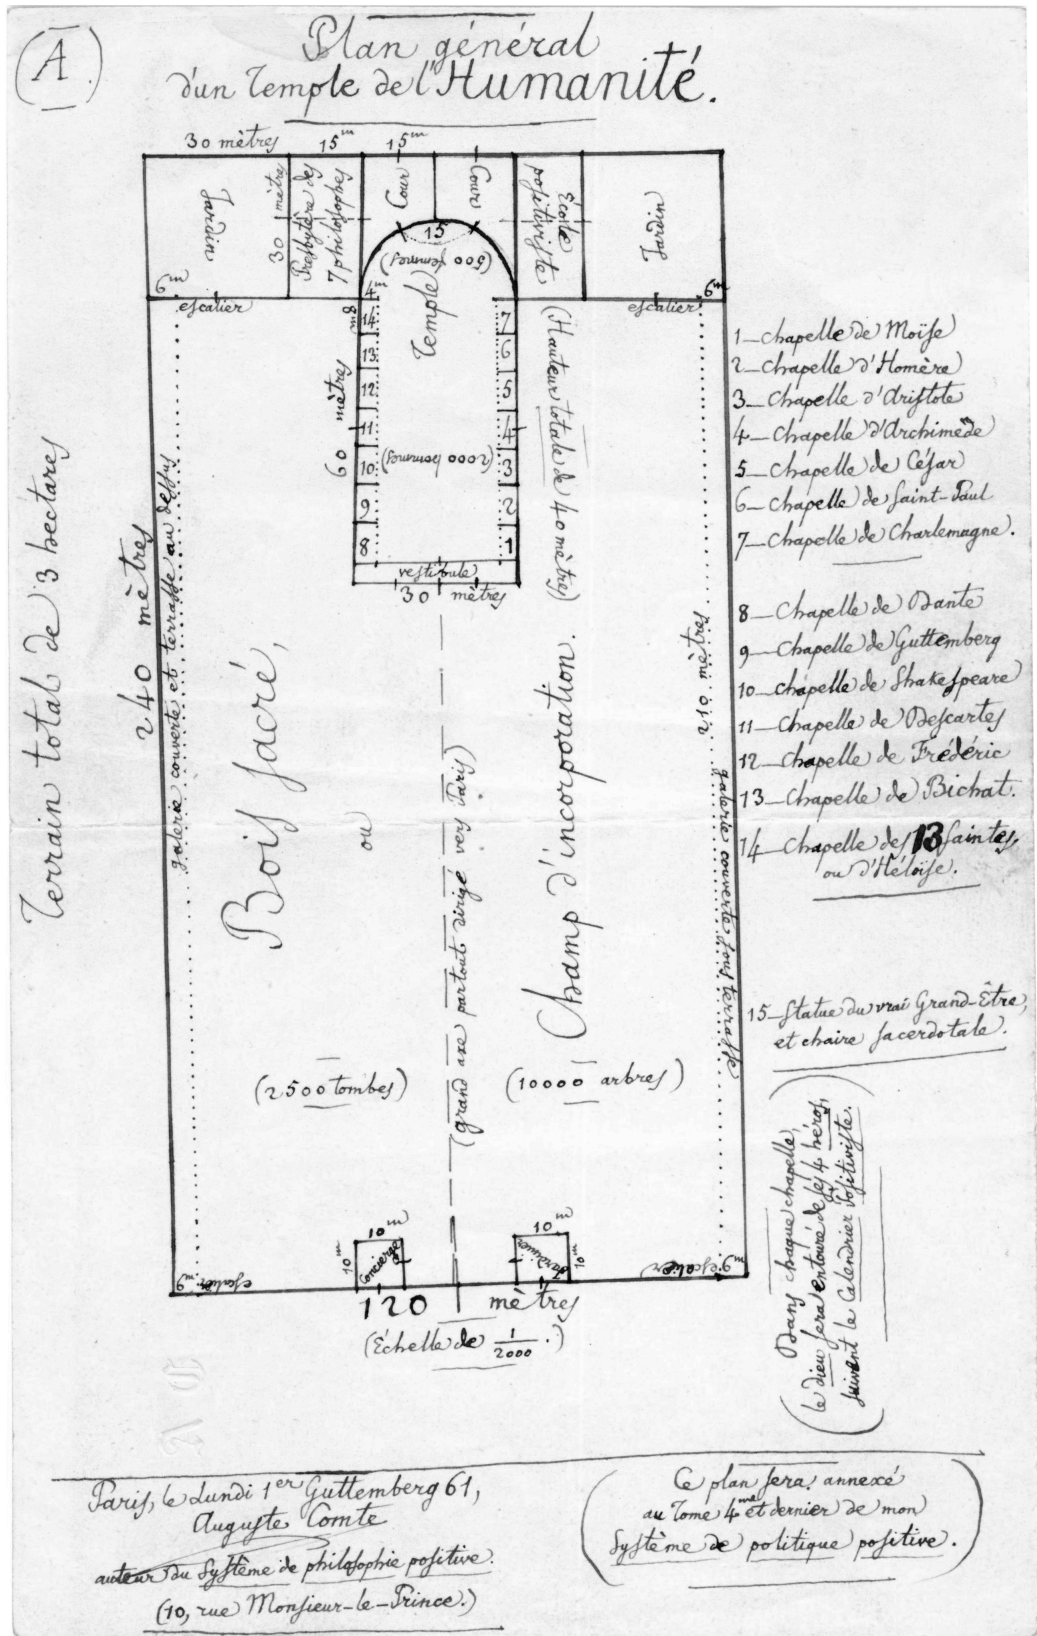 (A.)
Plan général
d'un Temple de l'Humanité.
30 mètres
15m
15m
Jardin
30 mètres
Presbytère des
7 philosophes
Cour
Cour
École
positiviste
Jardin
15
(500 femmes)
6m
escalier
4m
8m
Temple
escalier
6m
14
13
12
11
10
9
8
7
6
5
4
3
2
1
60 mètres
(2000 hommes)
(Hauteur totale de 40 mètres)
vestibule
30 mètres
Terrain total de 3 hectares
240 mètres
galerie couverte et terrasse au dessus
Bois sacré,
ou
(grand axe partout dirigé vers Paris)
Champ d'incorporation.
210 mètres
galerie couverte sous terrasse
(2500 tombes)
(10000 arbres)
10m
10m
Concierge
10m
10m
Jardinier
6m
escalier
escalier
6m
120 mètres
(Échelle de 1/2000.)
1_Chapelle de Moïse
2_Chapelle d'Homère
3_Chapelle d'Aristote
4_Chapelle d'Archimède
5_Chapelle de César
6_Chapelle de Saint-Paul
7_Chapelle de Charlemagne.
8_Chapelle de Dante
9_Chapelle de Guttemberg
10_Chapelle de Shakespeare
11_Chapelle de Descartes
12_Chapelle de Frédéric
13_Chapelle de Bichat.
14_Chapelle des 13 Saintes,
ou d'Héloïse.
15_Statue du vrai Grand-Être,
et chaire sacerdotale.
(Dans chaque chapelle,
le dieu sera entouré de ses 4 héros,
suivant le Calendrier Positiviste.)
Paris, le Lundi 1er Guttemberg 61,
Auguste Comte
auteur du Système de philosophie positive.
(10, rue Monsieur-le-Prince.)
(Ce plan sera annexé
au Tome 4me et dernier de mon
Système de politique positive.)